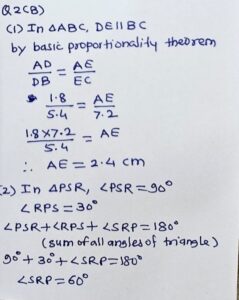 Q2(B)
(1) In ∆ABC, DE||BC
by basic proportionality theorem
AD/DB = AE/EC
1.8/5.4 = AE/7.2
1.8×7.2/5.4 = AE
∴ AE = 2.4 cm
(2) In ∆PSR, ∠PSR = 90°
∠RPS = 30°
∠PSR + ∠RPS + ∠SRP = 180°
(sum of all angles of triangle)
90° + 30° + ∠SRP = 180°
∠SRP = 60°